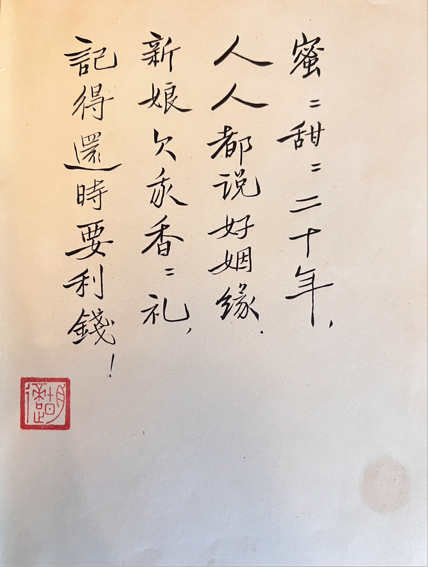 蜜〻甜〻二十年，
人人都说好姻缘.
新娘欠我香〻礼，
記得還時要利錢！
胡適